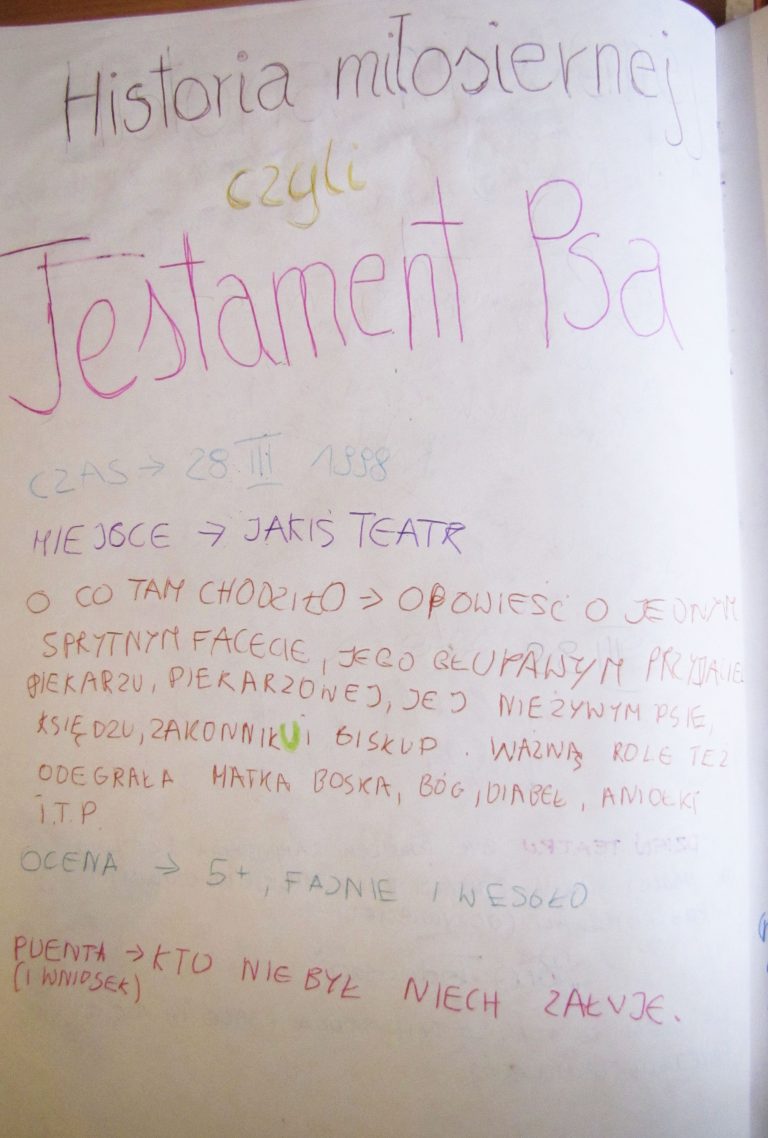 Historia miłosiernej
czyli
Testament Psa
CZAS → 28 III 1998
MIEJSCE → JAKIŚ TEATR
O CO TAM CHODZIŁO → OPOWIEŚĆ O JEDNYM
SPRYTNYM FACECIE, JEGO GŁUPAWYM PRZYJACIEL
PIEKARZU, PIEKARZOWEJ, JEJ NIEŻYWYM PSIE,
KSIĘDZU, ZAKONNIKU I BISKUP. WAŻNĄ ROLE TEŻ
ODEGRAŁA MATKA BOSKA, BÓG, DIABEŁ, ANIOŁKI
I.T.P.
OCENA → 5+, FAJNIE I WESOŁO
PUENTA → KTO NIE BYŁ NIECH ŻAŁUJE.
(I WNIOSEK)